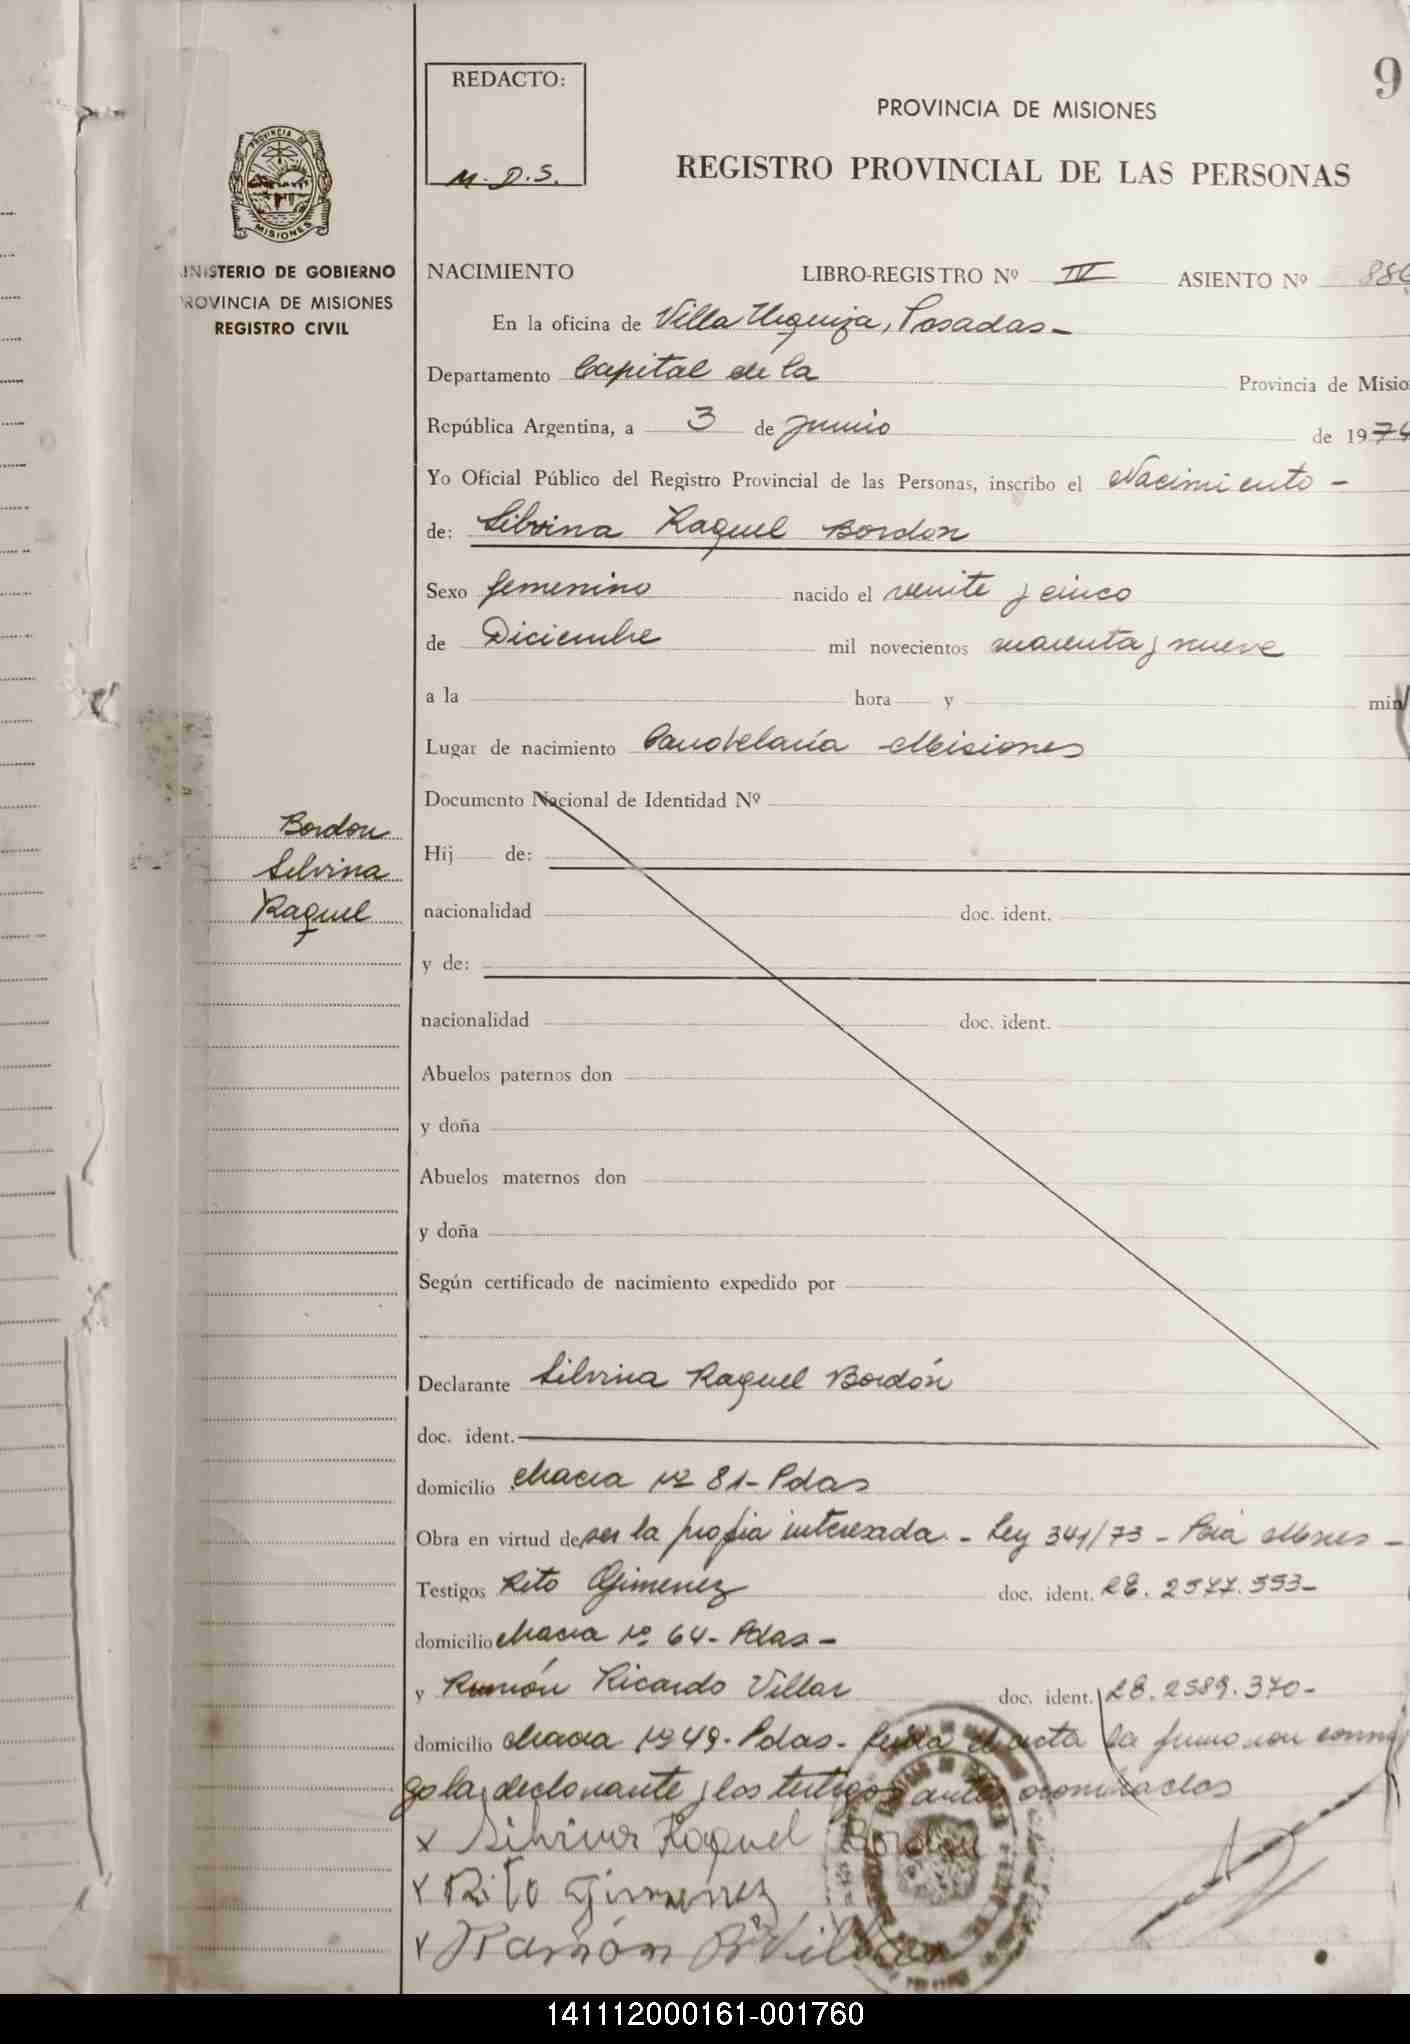 REDACTO:
M. D. S.
9
PROVINCIA DE MISIONES
REGISTRO PROVINCIAL DE LAS PERSONAS
PROVINCIA DE
MISIONES
INISTERIO DE GOBIERNO
ROVINCIA DE MISIONES
REGISTRO CIVIL
NACIMIENTO LIBRO-REGISTRO Nº IV ASIENTO Nº 886
En la oficina de Villa Urquiza, Posadas -
Departamento Capital de la Provincia de Misio
República Argentina, a 3 de Junio de 1974
Yo Oficial Público del Registro Provincial de las Personas, inscribo el Nacimiento -
de: Silvina Raquel Bordon
Sexo femenino nacido el veinte y cinco
de Diciembre mil novecientos cuarenta y nueve
a la hora y min
Lugar de nacimiento Candelaria Misiones
Documento Nacional de Identidad Nº
Bordon
Silvina
Raquel
Hij de:
nacionalidad doc. ident.
y de:
nacionalidad doc. ident.
Abuelos paternos don
y doña
Abuelos maternos don
y doña
Según certificado de nacimiento expedido por
Declarante Silvina Raquel Bordón
doc. ident.
domicilio Chacra nº 81- Pdas
Obra en virtud de ser la propia interesada - Ley 341/73 - Pcia Mnes -
Testigos Rito Gimenez doc. ident. LE. 2577.553-
domicilio Chacra nº 64- Pdas -
y Ramón Ricardo Villar doc. ident. LE. 2589.370-
domicilio Chacra nº 49- Pdas- Leida el acta la firmaron conmi
go la declarante y los testigos antes nombrados
x Silvina Raquel Bordon
x Rito Gimenez
x Ramón R Villar
141112000161-001760